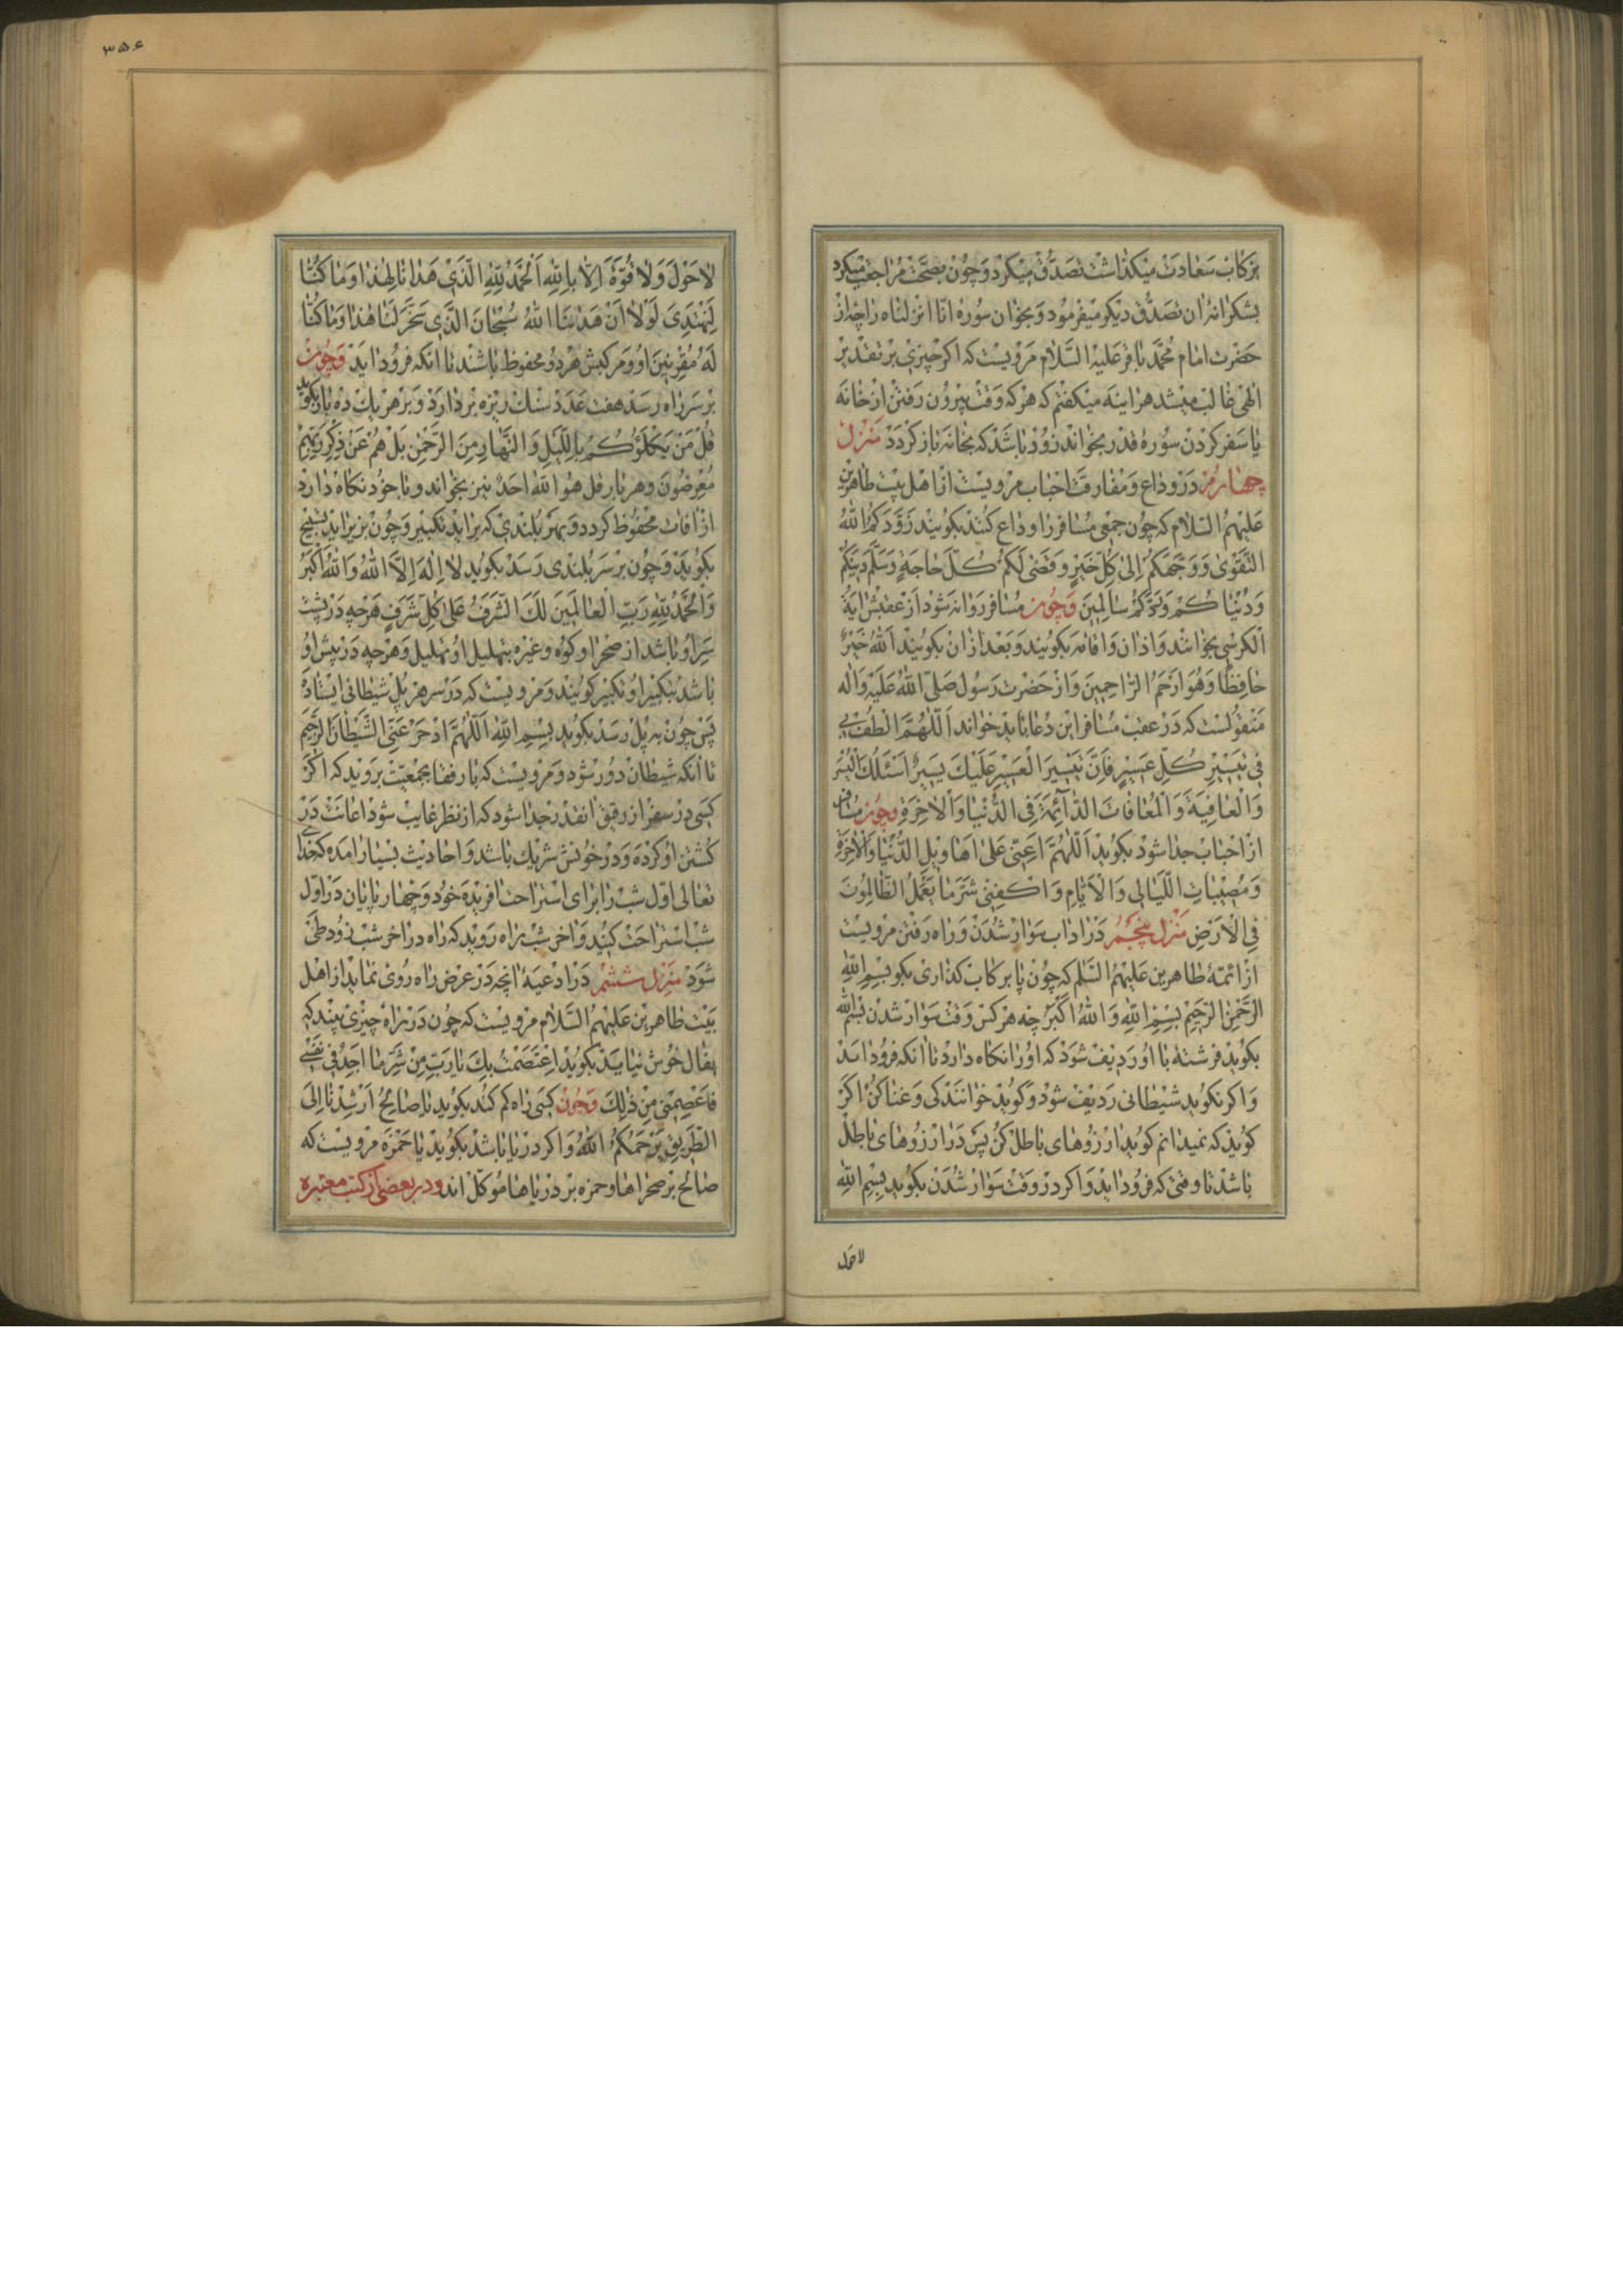 بر کاب سعادت میکذاشت تصدق میکرد و چون بصحت مراجعت میکرد
بشکرانهٔ ان تصدق دیکر میفرمود و بخوان سورهٔ انا انزلناه را چه از
حضرت امام محمد باقر علیه السلام مرویست که اکر چیزی بر تقدیر
الهی غالب میشد هراینه میکفتم که هر که وقت بیرون رفتن از خانه
یا سفر کردن سورهٔ قدر بخواند زود باشد که بخانه باز کردد منزل
چهارم در وداع و مفارقت احباب مرویست از اهل بیت طاهرین
علیهم السلام که چون جمعی مسافر را وداع کنند بکویند زَوَّدَکُمُ اللهُ
التَّقْوٰی وَوَجَّهَکُمْ اِلیٰ کُلِّ خَیْرٍ وَقَضیٰ لَکُمْ کُلَّ حٰاجَةٍ وَسَلَّمَ دینَکُمْ
وَدُنْیٰاکُمْ وَرَدَّکُمْ سٰالِمینَ وچون مسافر روانه شود از عقبش ایة
الکرسی بخوانند و اذان و اقامه بکویند و بعد از ان بکویند اَللهُ خَیْرٌ
حٰافِظًا وَهُوَ اَرْحَمُ الرّٰاحِمینَ و از حضرت رسول صلی الله علیه و اله
منقولست که در عقب مسافر این دعا باید خواند اَللّٰهُمَّ الْطُفْ بی
فی تَیْسیرِ کُلِّ عَسیرٍ فَاِنَّ تَیْسیرَ الْعَسیرِ عَلَیْكَ یَسیرٌ اَسْئَلُكَ الْیُسْرَ
وَالْعٰافِیَةَ وَالْمُعٰافٰاتَ الدّٰائِمَةَ فِی الدُّنْیٰا وَالْاٰخِرَةِ وچون مسافر
از احباب جدا شود بکوید اَللّٰهُمَّ اَعِنّی عَلیٰ اَهٰاویلِ الدُّنْیٰا وَالْاٰخِرَةِ
وَمُصیبٰاتِ اللَّیٰالی وَالْاَیّٰامِ وَاکْفِنی شَرَّ مٰا یَعْمَلُ الظّٰالِمُونَ
فِی الْاَرْضِ منزل پنجم در اداب سوار شدن و راه رفتن مرویست
از ائمهٔ طاهرین علیهم السلم که چون پا بر کاب کذاری بکو بِسْمِ اللهِ
الرَّحْمٰنِ الرَّحیمِ بِسْمِ اللهِ وَاللهُ اَکْبَرُ چه هر کس وقت سوار شدن بسم الله
بکوید فرشتهٔ با او ردیف شود که او را نکاه دارد تا انکه فرود اید
و اکر نکوید شیطانی ردیف شود و کوید خوانندکی و غنا کن اکر
کوید که نمیدانم کوید ارزوهای باطل کن پس در ارزوهای باطل
باشد تا وقتی که فرود اید و اکر در وقت سوار شدن بکوید بِسْمِ اللهِ
لاحول
۳۵۶
لٰا حَوْلَ وَلٰا قُوَّةَ اِلّٰا بِاللهِ اَلْحَمْدُ لِلّٰهِ الَّذی هَدٰانٰا لِهٰذٰا وَمٰا کُنّٰا
لِنَهْتَدِیَ لَوْلٰا اَنْ هَدٰینَا اللهُ سُبْحٰانَ الَّذی سَخَّرَ لَنٰا هٰذٰا وَمٰا کُنّٰا
لَهُ مُقْرِنینَ او و مرکبش هر دو محفوظ باشند تا انکه فرود اید وچون
بر سر راه رسد هفت عدد سنك ریزه بر دارد و بر هر یك ده بار بکوید
قُلْ مَنْ یَکْلَؤُکُمْ بِاللَّیْلِ وَالنَّهٰارِ مِنَ الرَّحْمٰنِ بَلْ هُمْ عَنْ ذِکْرِ رَبِّهِمْ
مُعْرِضُونَ و هر بار قل هو الله احد نیز بخواند و با خود نکاه دارد
از افات محفوظ کردد و بهر بلندی که براید تکبیر و چون بزیر اید تسبیح
بکوید و چون بر سر بلندی رسد بکوید لٰا اِلٰهَ اِلَّا اللهُ وَاللهُ اَکْبَرُ
وَالْحَمْدُ لِلّٰهِ رَبِّ الْعٰالَمینَ لَكَ الشَّرَفُ عَلیٰ کُلِّ شَرَفٍ هر چه در پشت
سر او باشد از صحرا و کوه و غیره بتهلیل او تهلیل و هر چه در پیش او
باشد بتکبیر او تکبیر کویند و مرویست که در سر هر پل شیطانی ایستاده
پس چون بپل رسد بکوید بِسْمِ اللهِ اَللّٰهُمَّ ادْحَرْ عَنّی الشَّیْطٰانَ الرَّجیمَ
تا انکه شیطان دور شود و مرویست که با رفقا بجمعیت بروید که اکر
کسی در سفر از رفیق انقدر جدا شود که از نظر غایب شود اعانت در
کشتن او کرده و در خونش شریك باشد و احادیث بسیار امده که خدای
تعالی اول شب را برای استراحت افریده خود و چهار پایان در اول
شب استراحت کنید و اخر شب براه روید که راه در اخر شب زود طی
شود منزل ششم در ادعیهٔ انچه در عرض راه روی نماید از اهل
بیت طاهرین علیهم السلام مرویست که چون در راه چیزی بیند که
بفال خوش نیاید بکوید اِعْتَصَمْتُ بِكَ یٰا رَبِّ مِنْ شَرِّ مٰا اَجِدُ فی نَفْسی
فَاعْصِمْنی مِنْ ذٰلِكَ وچون کسی راه کم کند بکوید یٰا صٰالِحُ اَرْشِدْنٰا اِلَی
الطَّریقِ یَرْحَمُکُمُ اللهُ و اکر در دریا باشد بکوید یٰا حَمْزَه مرویست که
صالح بر صحراها و حمزه بر دریاها موکل اند و در بعضی از کتب معتبره